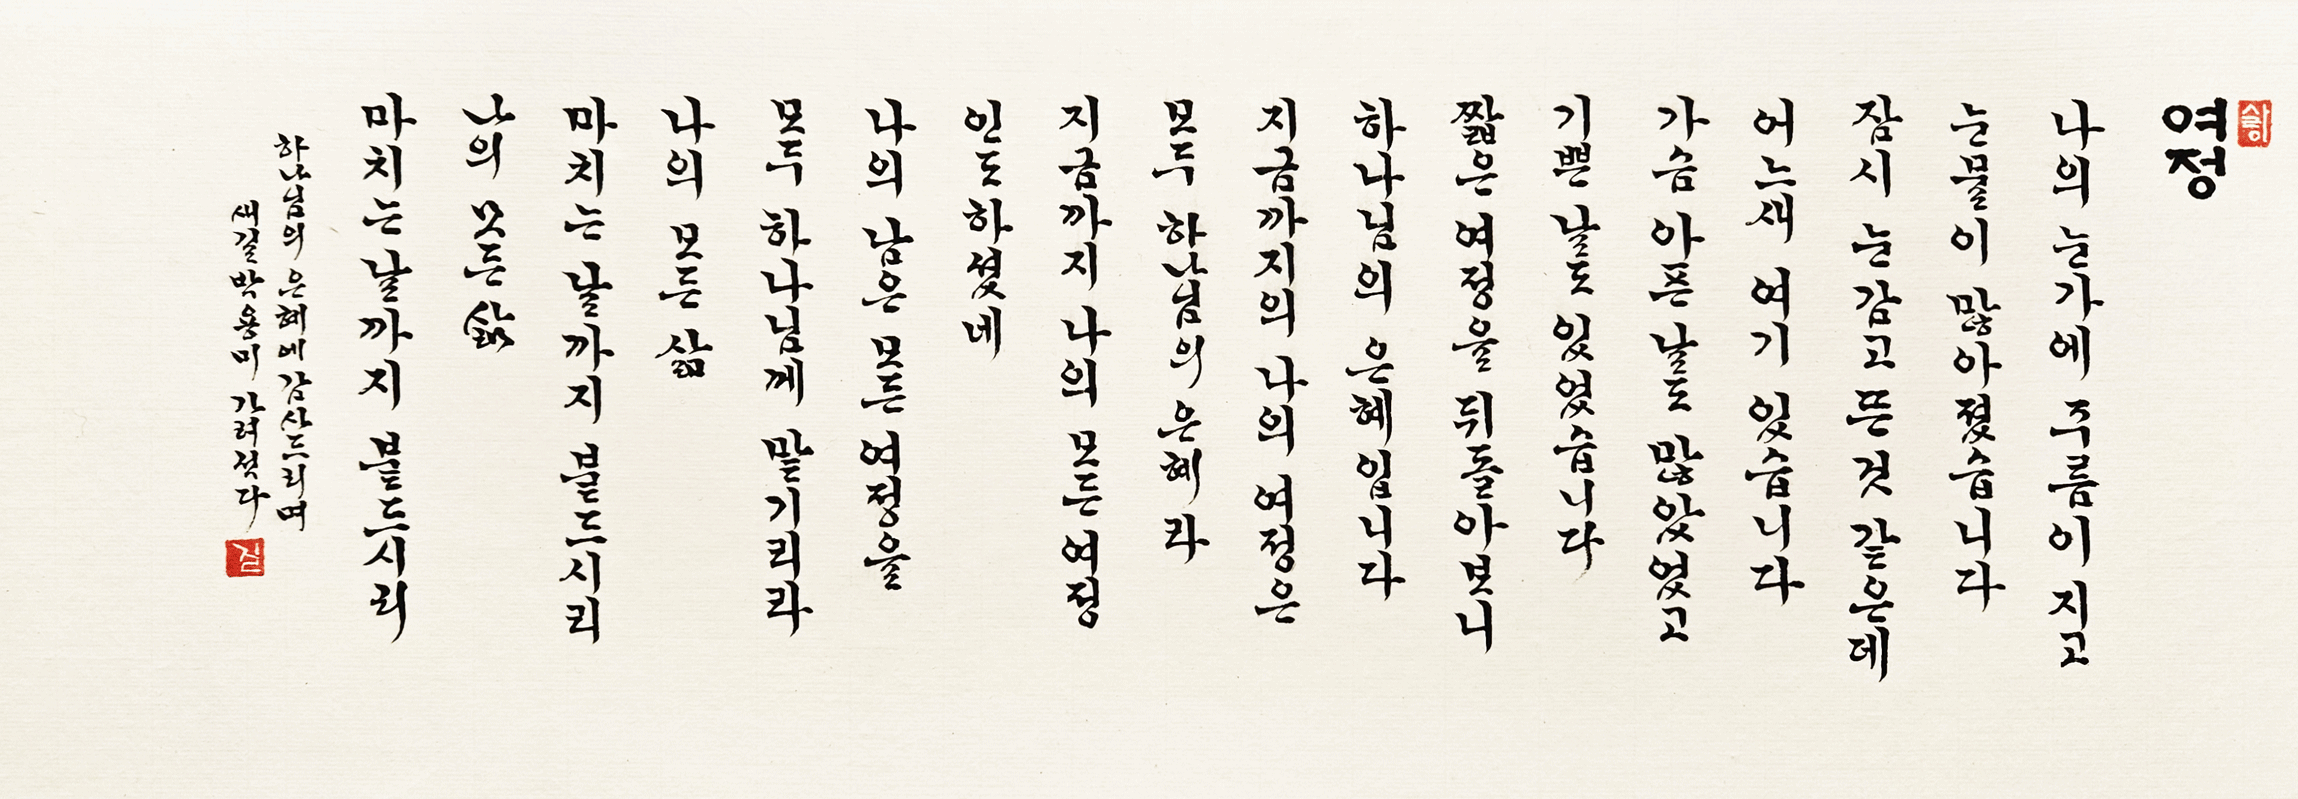 삶이
여정
나의 눈가에 주름이 지고
눈물이 많아졌습니다
잠시 눈 감고 뜬 것 같은데
어느새 여기 있습니다
가슴 아픈 날도 많았었고
기쁜 날도 있었습니다
짧은 여정을 뒤돌아보니
하나님의 은혜입니다
지금까지의 나의 여정은
모두 하나님의 은혜라
지금까지 나의 모든 여정
인도하셨네
나의 남은 모든 여정을
모두 하나님께 맡기리라
나의 모든 삶
마치는 날까지 붙드시리
나의 모든 삶
마치는 날까지 붙드시리
하나님의 은혜에 감사드리며
새길 박용미 가려졌다
길